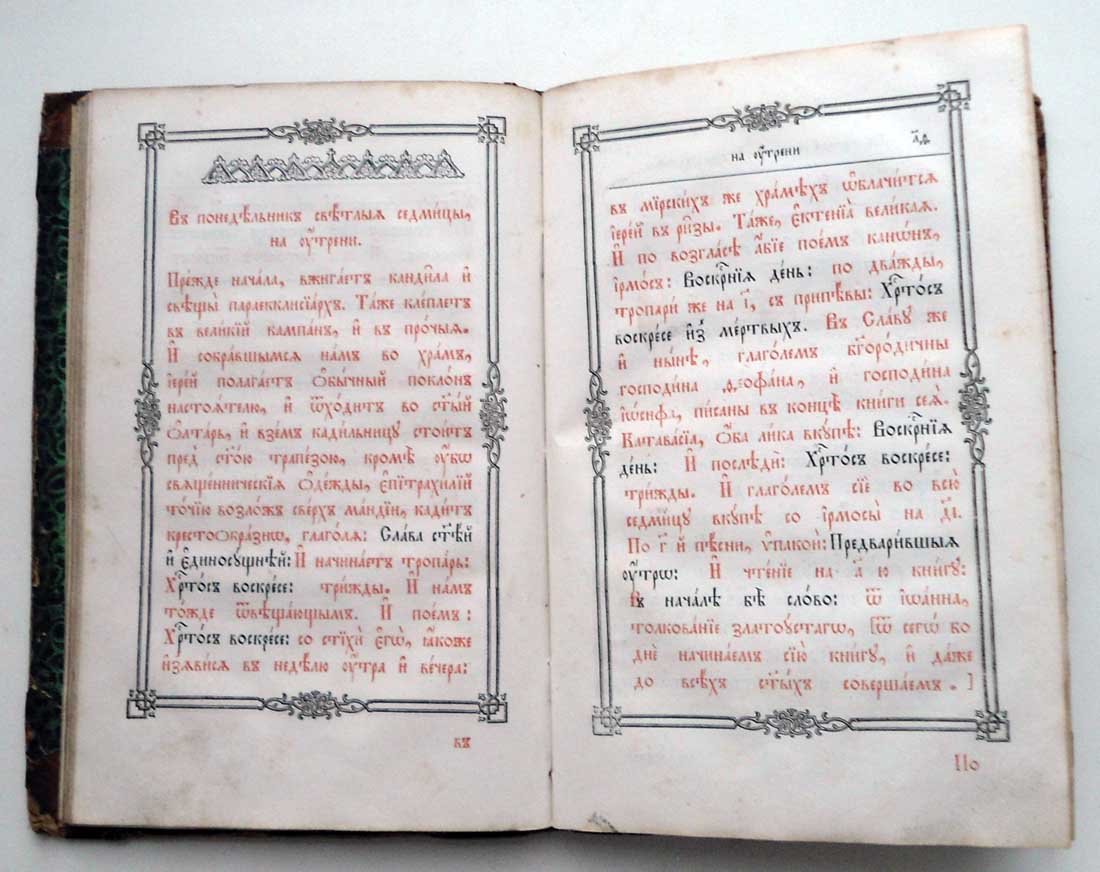 Въ понедѣ́льникъ свѣ́тлыѧ седми́цы,
на оу҆́трени.
Пре́жде нача́ла, вжига́етъ канди̑ла и҆
свѣщы̀ параекклисїа́рхъ. Та́же кле́плетъ
въ вели́кїй кампа́нъ, и҆ въ про́чыѧ.
И҆ собра́вшымсѧ на́мъ во хра́мъ,
і҆ере́й полага́етъ ѻ҆бы́чный покло́нъ
настоѧ́телю, и҆ ѿхо́дитъ во ст҃ы́й
ѻ҆лта́рь, и҆ взе́мъ кади́льницу стои́тъ
пред̾ ст҃о́ю трапе́зою, кромѣ̀ оу҆́бѡ
свѧще́нническїѧ ѻ҆де́жды, є҆пїтрахи́лїй
то́чїю возло́жъ све́рхъ манді́и, кади́тъ
крестоѻбра́знѡ, глаго́лѧ: Сла́ва ст҃ѣ́й
и҆ є҆диносꙋ́щнѣй: И҆ начина́етъ тропа́рь:
Хрⷭ҇то́съ воскре́се: три́жды. И҆ на́мъ
то́жде ѿвѣща́ющымъ. И҆ пое́мъ:
Хрⷭ҇то́съ воскре́се: со стїхѝ є҆гѡ̀, ꙗ҆́коже
и҆з̾ѧви́сѧ въ недѣ́лю оу҆́тра и҆ ве́чера:
къ
на оу҆́трени
въ мїрски́хъ же хра́мѣхъ ѡ҆блачи́тсѧ
і҆ере́й въ ри̑зы. Та́же, є҆ктенїа̀ вели́каѧ.
И҆ по во́згласѣ а҆́бїе пое́мъ канѡ́нъ,
і҆рмо́съ: Воскрⷭ҇нїѧ де́нь: по два́жды,
тропари́ же на і҃, съ припѣ́вы: Хрⷭ҇то́съ
воскре́се и҆з̾ ме́ртвыхъ. Въ Сла́ву же
и҆ ны́нѣ, глаго́лемъ бг҃оро́дичны
господи́на ѳеофа́на, и҆ господи́на
і҆ѡ́сифа, пи̑саны въ концѣ̀ кни́ги сеѧ̀.
Катава́сїа, ѻ҆́ба ли́ка вкꙋ́пѣ: Воскрⷭ҇нїѧ
де́нь: И҆ послѣдѝ: Хрⷭ҇то́съ воскре́се:
три́жды. И҆ глаго́лемъ сїѐ во всю̀
седми́цу вкꙋ́пѣ со і҆рмосы̀ на д҃і.
По г҃ й пѣ́сни, ѵ҆пакоѝ: Предвари́вшыѧ
оу҆́трѡ: И҆ чте́нїе на а҃ ю кни́гу:
Въ нача́лѣ бѣ̀ сло́во: ѿ і҆ѡа́нна,
толкова́нїе златоу́стагѡ, [Ѿ сегѡ̀ бо
днѐ начина́емъ сїю̀ кни́гу, и҆ да́же
до всѣ́хъ ст҃ы́хъ соверша́емъ. ]
По